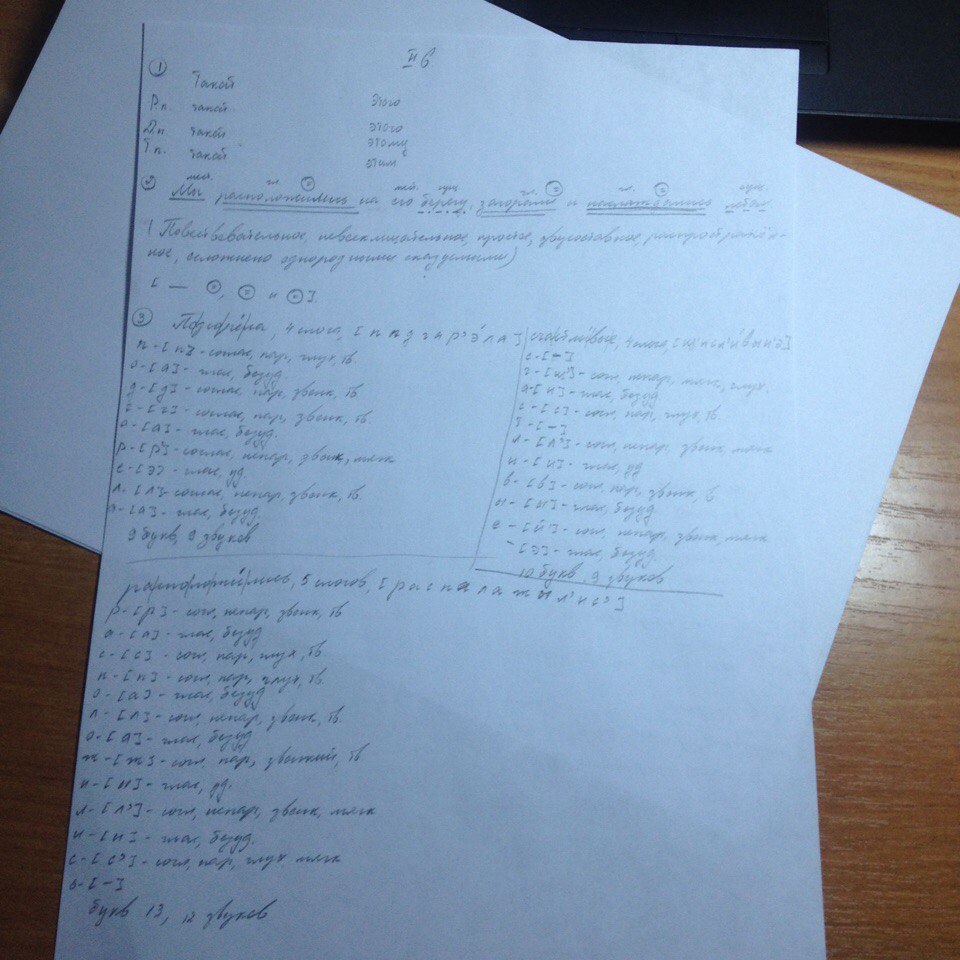 II 6
① Такой
Р.п. такой этого
Д.п такой этого
Т п. такой этому
этим
② мест. гл. мест. сущ. гл. гл. сущ.
Мы расположились на его берегу, загорали и наслаждались летом.
(Повествовательное, невосклицательное, простое, двусоставное, распространён-
ное, осложнено однородными сказуемыми)
[ — =, = и = ].
③ Подгорела, 4 слога, [п а д г а р' э л а]
п - [п] - соглас, пар, глух, тв.
о - [а] - глас, безуд.
д - [д] - соглас, пар, звонк, тв
г - [г] - соглас, пар, звонк, тв.
о - [а] - глас, безуд.
р - [р'] - соглас, непар, звонк, мягк
е - [э] - глас, уд.
л - [л] - соглас, непар, звонк, тв.
а - [а] - глас, безуд
9 букв, 9 звуков
счастливые, 4 слога,
с - [-]
ч - [щ'] - согл, непар, мягк, глух.
а - [и] - глас, безуд
с - [с] - согл, пар, глух, тв.
т - [-]
л - [л'] - согл, непар, звонк, мягк
и - [и] - глас, уд
в - [в] - согл, пар, звонк, тв
ы - [ы] - глас, безуд
е - [й'] - согл, непар, звонк, мягк
- [э] - глас, безуд
10 букв, 9 звуков
расположились, 5 слогов, [р а с п а л а ж ы л' и с']
р - [р] - согл, непар, звонк, тв
а - [а] - глас, безуд
с - [с] - согл, пар, глух, тв
п - [п] - согл, пар, глух, тв.
о - [а] - глас, безуд
л - [л] - согл, непар, звонк, тв.
о - [а] - глас, безуд
ж - [ж] - согл, пар, звонкий, тв
и - [ы] - глас, уд.
л - [л'] - согл, непар, звонк, мягк
и - [и] - глас, безуд.
с - [с'] - согл, пар, глух мягк
ь - [-]
букв 13, 12 звуков